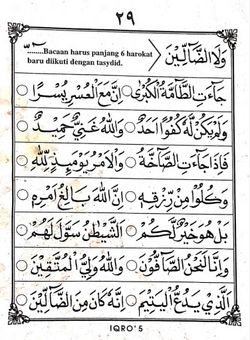 ٢٩
وَلَا الضَّآلِّيْنَ
........Bacaan harus panjang 6 harokat
baru diikuti dengan tasydid.
جَآءَتِ الطَّآمَّةُ الْكُبْرٰى ○ اِنَّ مَعَ الْعُسْرِ يُسْرًا ○
وَلَمْ يَكُنْ لَّهٗ كُفُوًا اَحَدٌ ○ وَاللّٰهُ غَنِيٌّ حَمِيْدٌ ○
فَاِذَا جَآءَتِ الصَّآخَّةُ ○ وَالْاَمْرُ يَوْمَئِذٍ لِّلّٰهِ ○
وَكُلُوْا مِنْ رِّزْقِهٖ ○ اِنَّ اللّٰهَ بَالِغُ اَمْرِهٖ ○
بَلْ هُوَ خَيْرٌ لَّكُمْ ○ الشَّيْطٰنُ سَوَّلَ لَهُمْ ○
وَاِنَّا لَنَحْنُ الصَّآفُّوْنَ ○ وَاللّٰهُ وَلِيُّ الْمُتَّقِيْنَ ○
اَلَّذِيْ يَدُعُّ الْيَتِيْمَ ○ اِنَّهٗ كَانَ مِنَ الضَّآلِّيْنَ ○
IQRO' 5